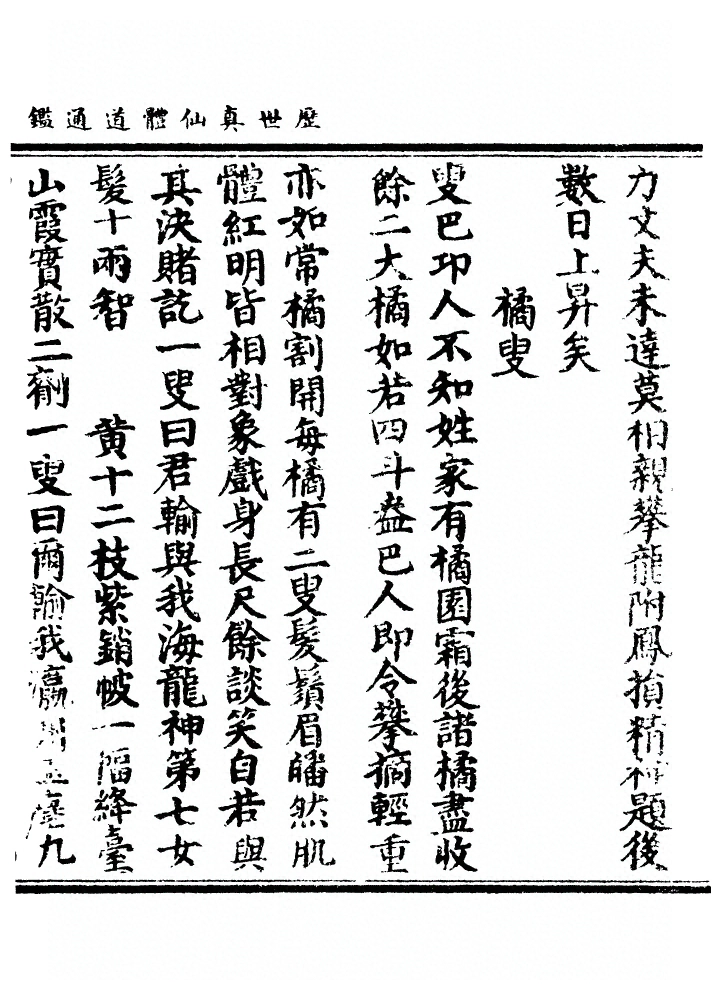 歷世真仙體道通鑑
力丈夫未達莫相親攀龍附鳳損精神題後
數日上昇矣
橘叟
叟巴邛人不知姓家有橘園霜後諸橘盡收
餘二大橘如若四斗盎巴人即令攀摘輕重
亦如常橘割開每橘有二叟髮鬚眉皤然肌
體紅明皆相對象戲身長尺餘談笑自若與
其決賭訖一叟曰君輸與我海龍神第七女
髮十兩智 黃十二枝紫銷帔一幅絳臺
山霞實散二劑一叟曰爾輸我瀛洲玉塵九